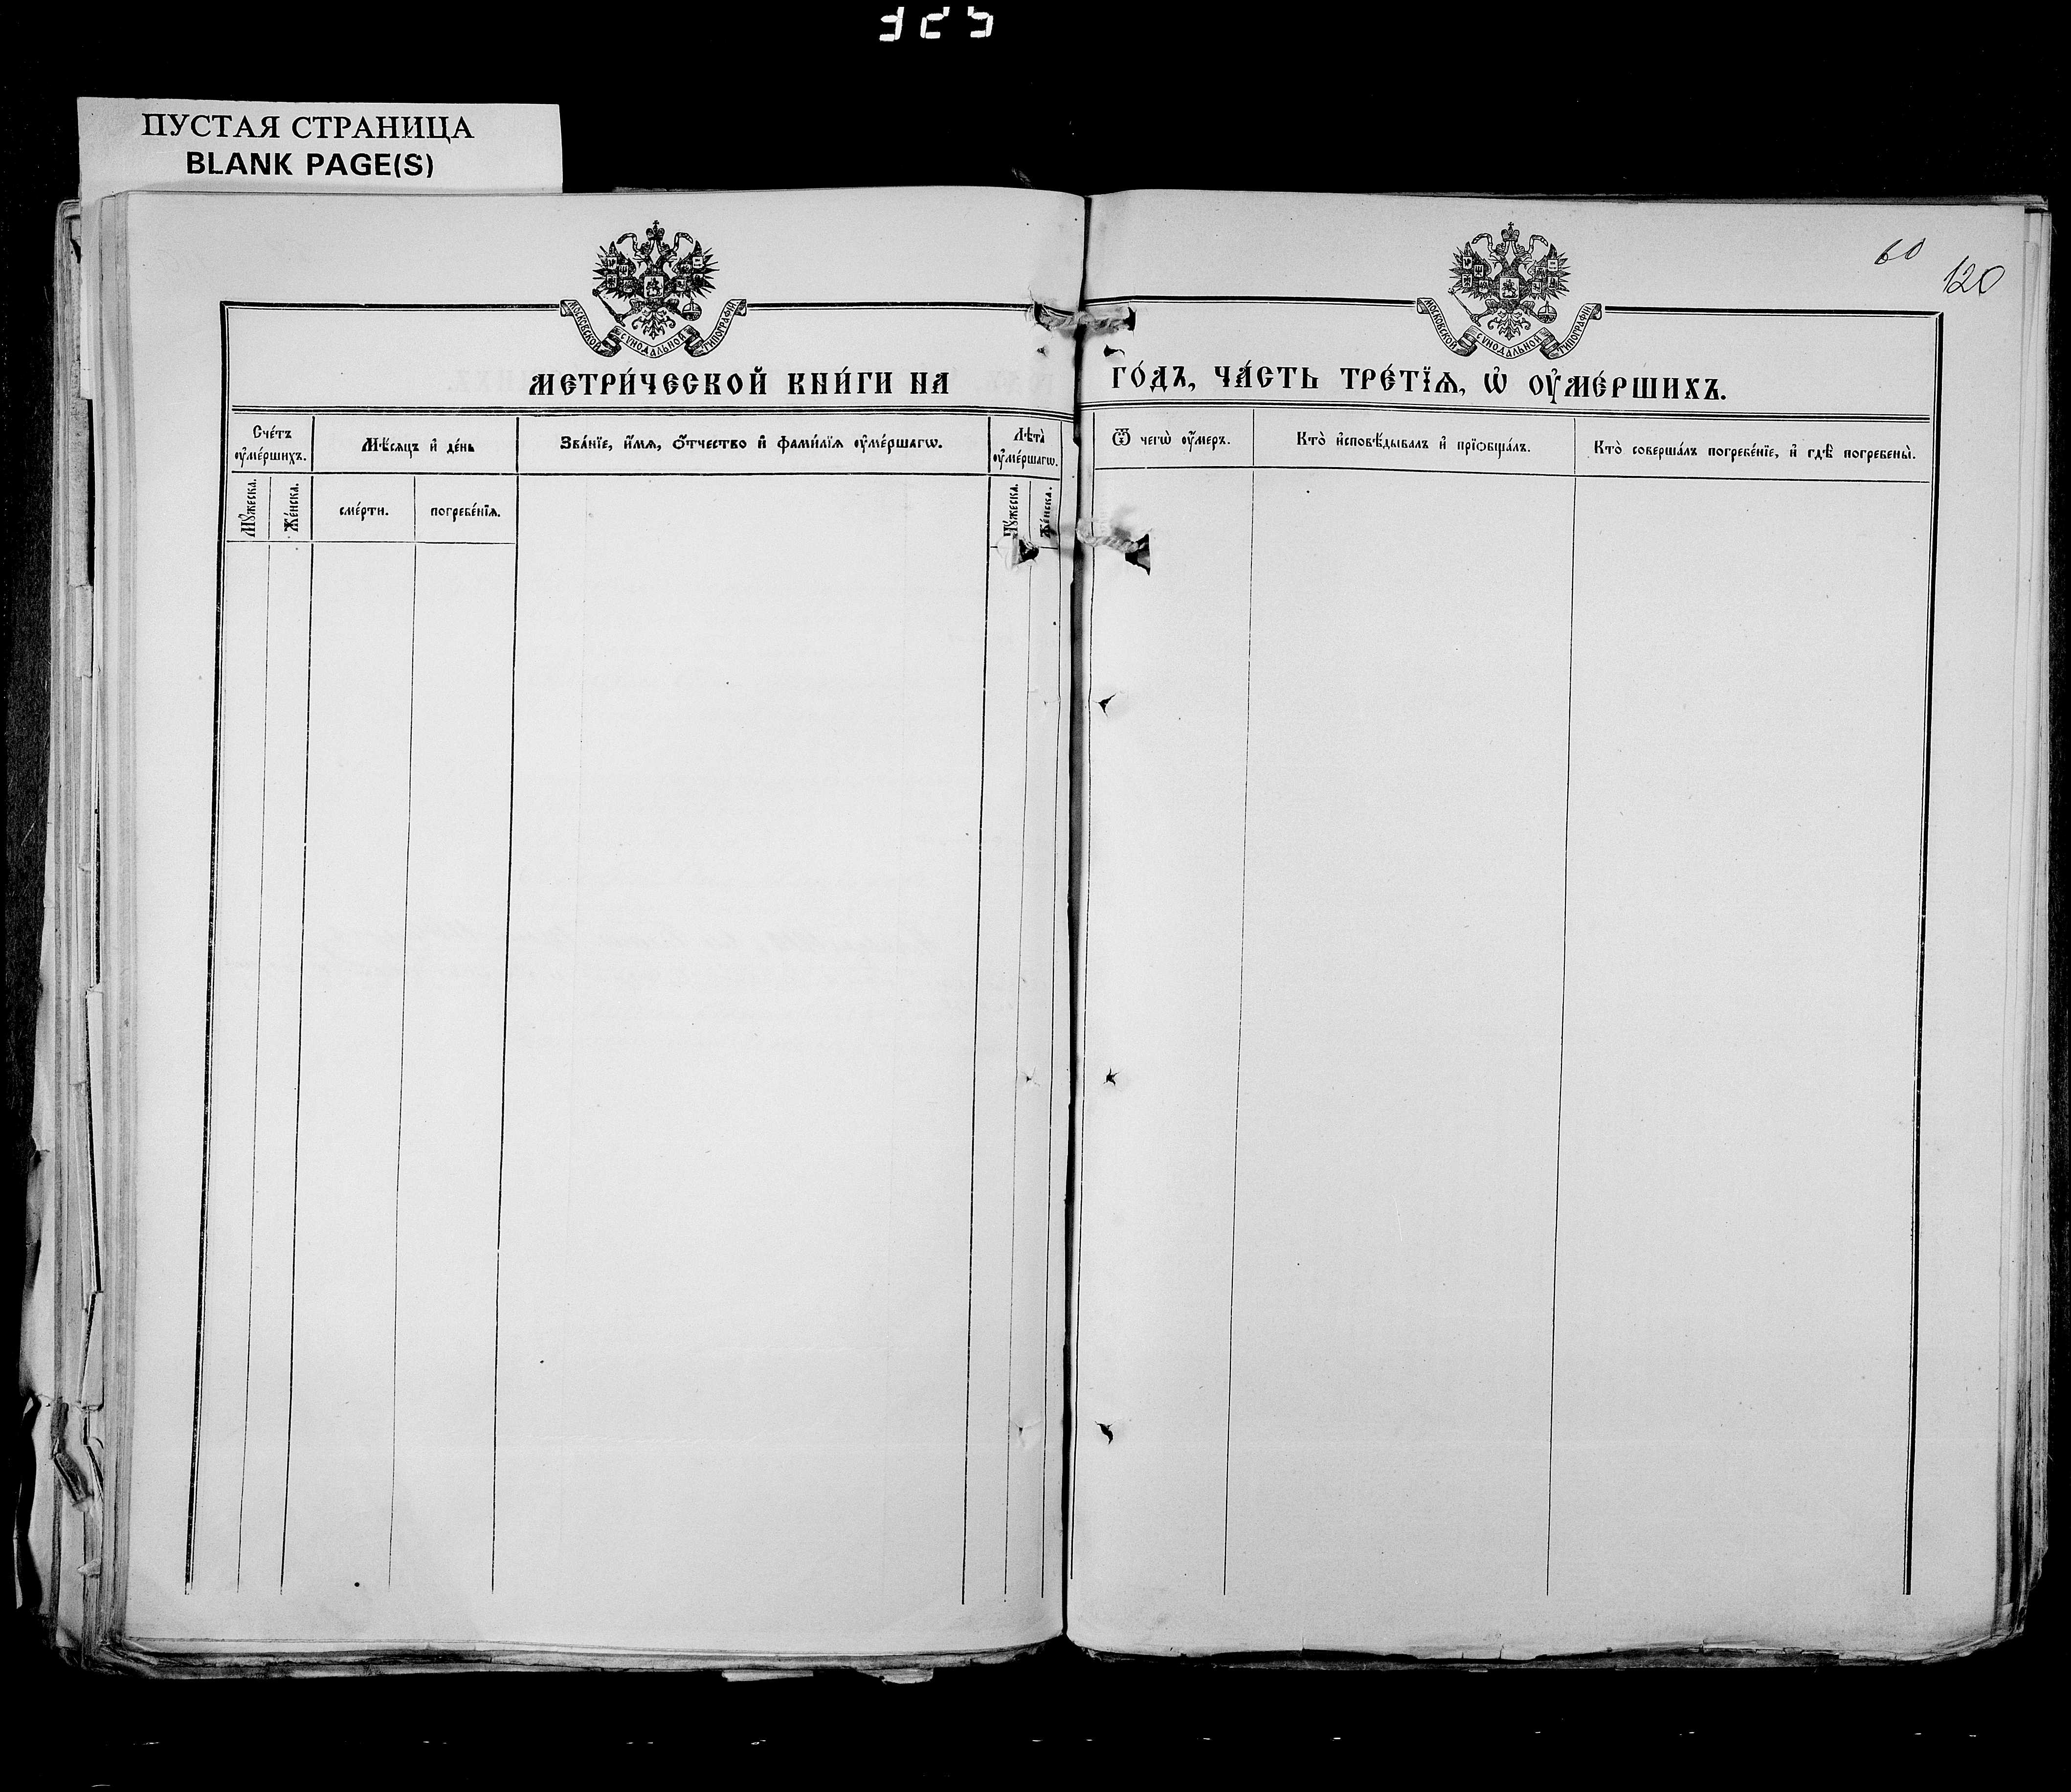 325
ПУСТАЯ СТРАНИЦА
BLANK PAGE(S)
60
120
МОСКОВСКОЙ СѴНОДАЛЬНОЙ ТИПОГРАФІИ
МОСКОВСКОЙ СѴНОДАЛЬНОЙ ТИПОГРАФІИ
МЕТРИ́ЧЕСКОЙ КНИ́ГИ НА
ГО́ДЪ, ЧА́СТЬ ТРЕ́ТЇѦ, Ѡ҆ ОУ҆МЕ́РШИХЪ.
Сче́тъ оу҆ме́ршихъ.
Мѣ́сѧцъ и҆ де́нь
Зва́нїе, и҆́мѧ, ѻ҆́тчество и҆ фами́лїѧ оу҆ме́ршагѡ.
Лѣта̀ оу҆ме́ршагѡ.
Ѿ чегѡ̀ оу҆́меръ.
Кто̀ и҆сповѣ́дывалъ и҆ прїѡбща́лъ.
Кто̀ соверша́лъ погребе́нїе, и҆ гдѣ̀ погребены̀.
Мꙋ́жеска.
Же́нска.
сме́рти.
погребе́нїѧ.
Мꙋ́жеска.
Же́нска.